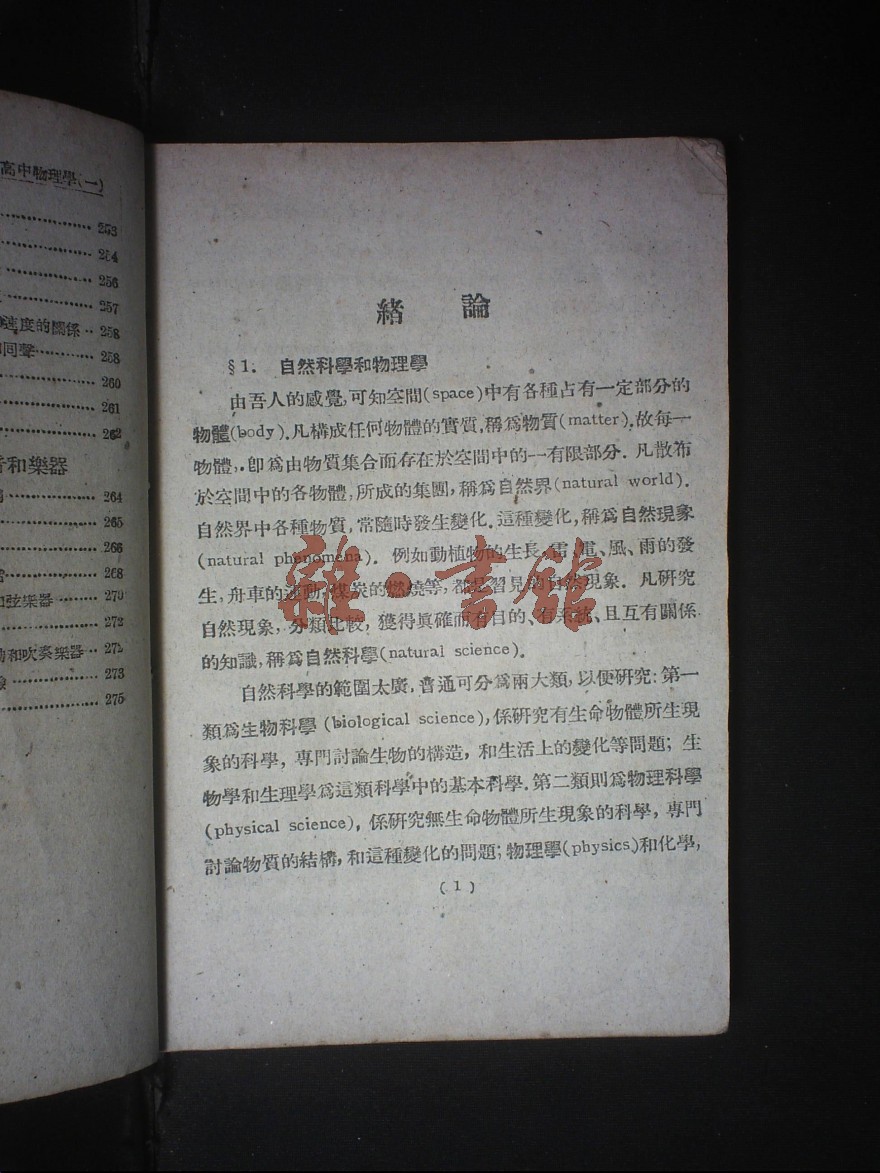 高中物理學(一)
253
254
256
257
速度的關係 258
回聲 258
260
261
262
音和樂器
264
265
266
268
和弦樂器 270
272
和吹奏樂器 272
273
275
緒 論
§1. 自然科學和物理學
由吾人的感覺,可知空間(space)中有各種占有一定部分的
物體(body).凡構成任何物體的實質,稱爲物質(matter).故每一
物體,卽爲由物質集合而存在於空間中的一有限部分.凡散布
於空間中的各物體,所成的集團,稱爲自然界(natural world).
自然界中各種物質,常隨時發生變化.這種變化,稱爲自然現象
(natural phenomena). 例如動植物的生長,雷、電、風、雨的發
生,舟車的運動,煤炭的燃燒等,都是習見的自然現象. 凡研究
自然現象,分類比較,獲得眞確而有目的、有系統、且互有關係
的知識,稱爲自然科學(natural science).
自然科學的範圍太廣,普通可分爲兩大類,以便研究:第一
類爲生物科學(biological science),係研究有生命物體所生現
象的科學,專門討論生物的構造,和生活上的變化等問題;生
物學和生理學爲這類科學中的基本科學.第二類則爲物理科學
(physical science),係研究無生命物體所生現象的科學,專門
討論物質的結構,和這種變化的問題;物理學(physics)和化學,
(1)
雜·書館